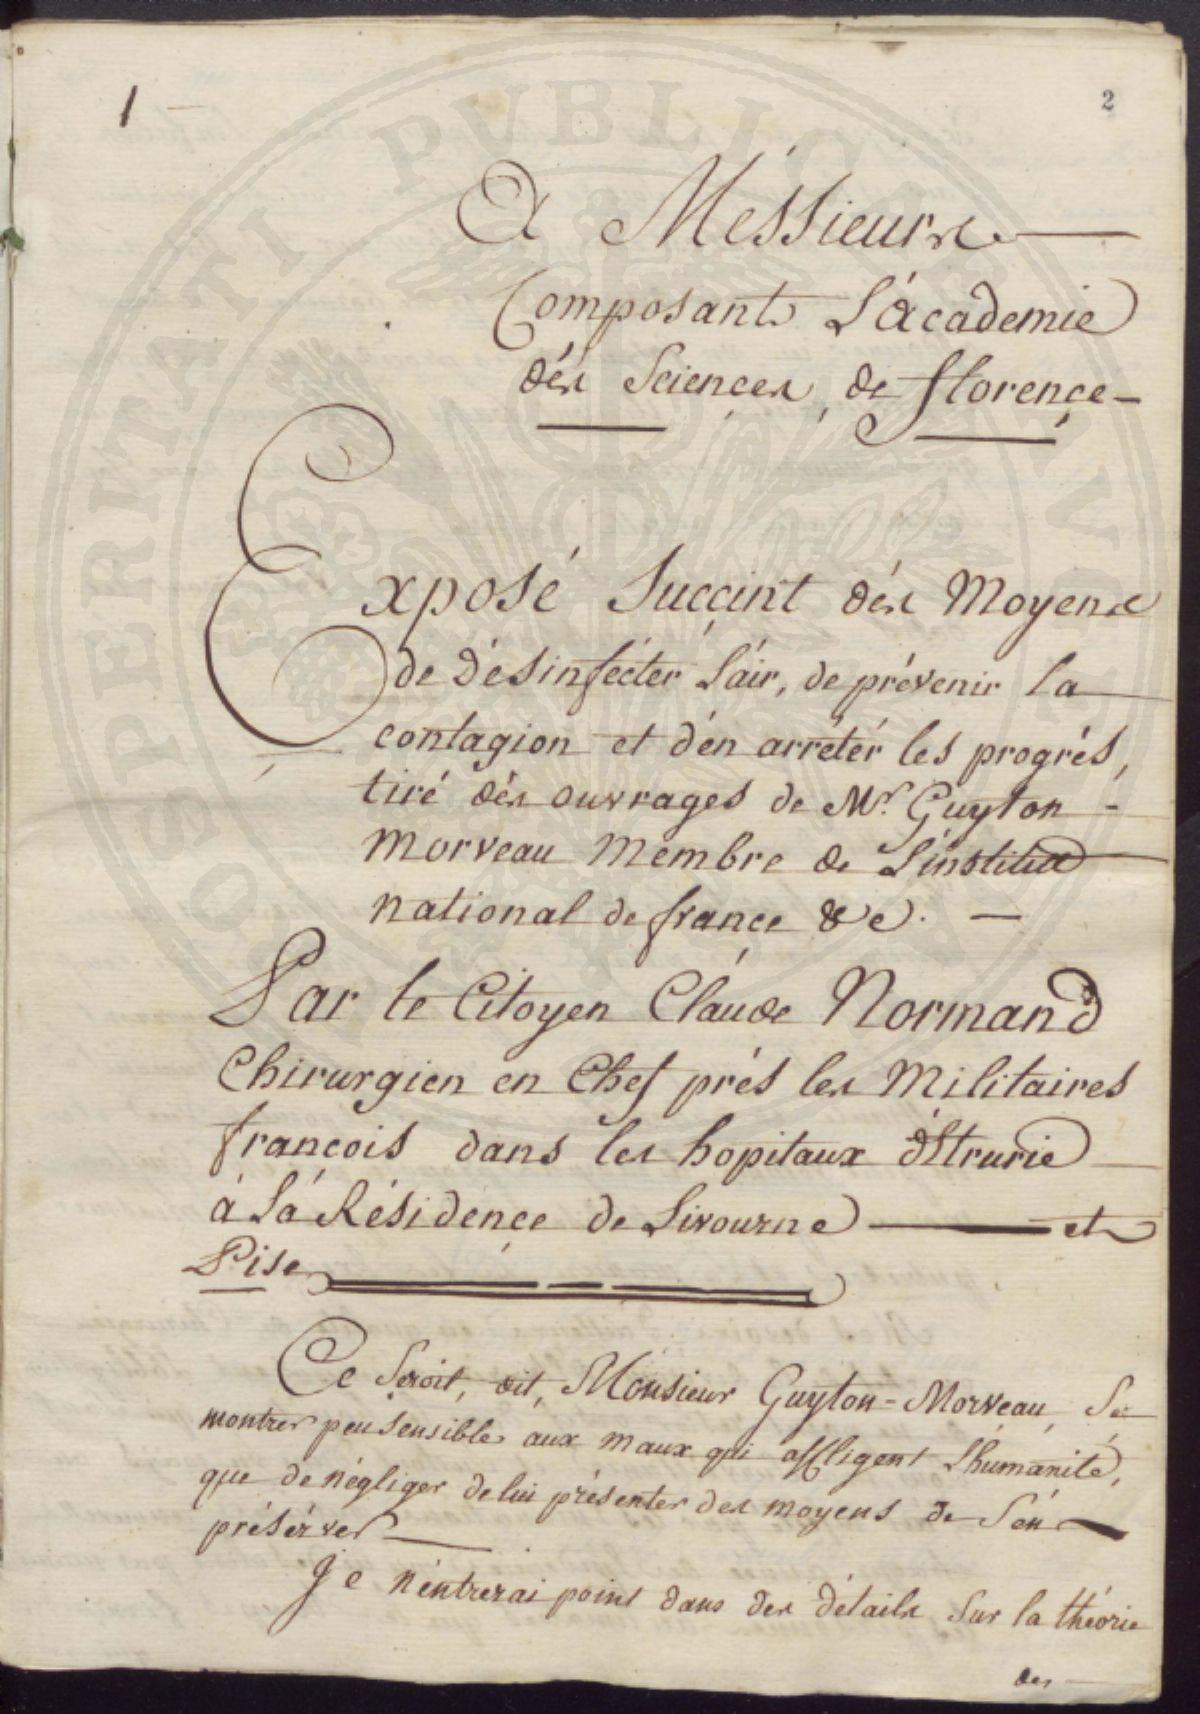 1
2
A Méssieurs
Composants L'académie
dés Sciences de florence
Exposé Succint dés Moyens
de désinfécter L'air, de prévenir la
contagion et d'én arrétér les progrés,
tiré dés ouvrages de Mr. Guyton -
morveau membre de L'institut
national de france &c. —
Par le Citoyen Claude Normand
Chirurgien en Chef prés les Militaires
francois dans les hopitaux d'Etrurie
á Sa Résidence de Livourne — et
Pise
Ce Seroit, dit, Monsieur Guyton-Morveau, Se
montrer peu sensible aux maux qui affligent L'humanité,
que de négliger de lui présenter des moyens de S'én
présérver
Je n'éntrerai point dans des détails Sur la théorie
des
SOSPERITATI PUBLICAE